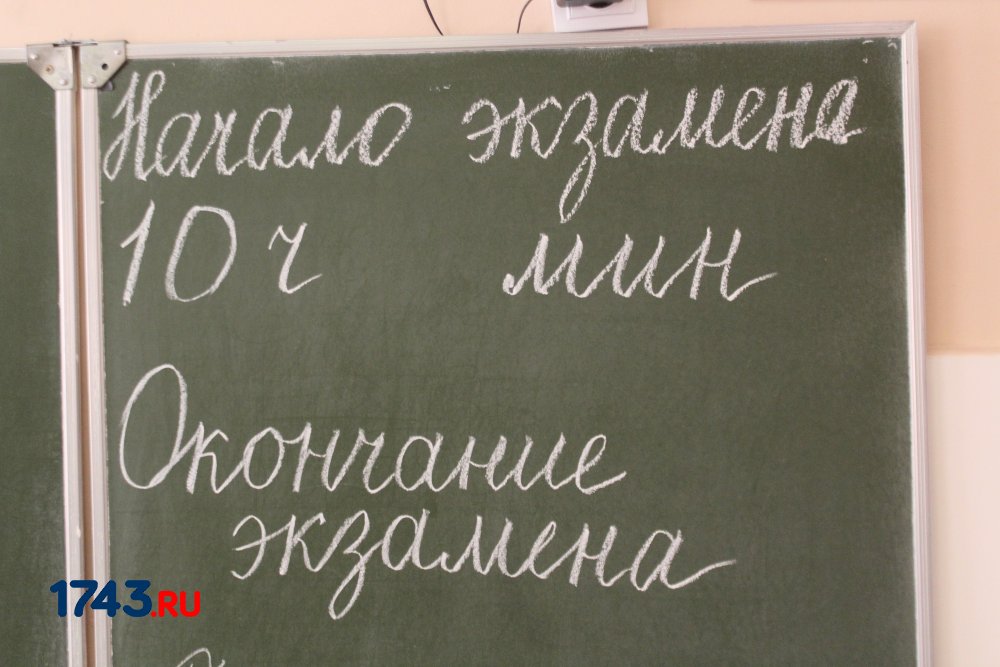 Начало экзамена
10 ч мин
Окончание
экзамена
1743.RU